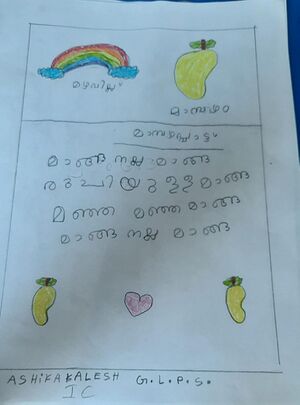 മഴവില്ല്
മാമ്പഴം
മാമ്പഴപ്പാട്ട്
മാങ്ങ നല്ല മാങ്ങ
മാങ്ങ
മഞ്ഞ മഞ്ഞ മാങ്ങ
മാങ്ങ നല്ല മാങ്ങ
ASHIKA KALESH G.L.P.S.
I C